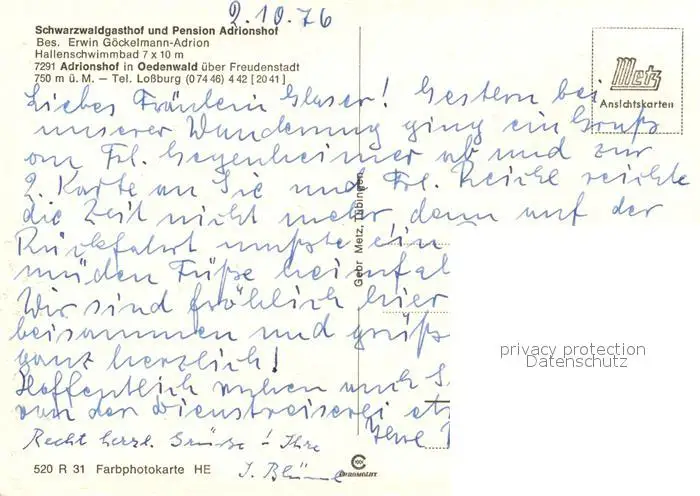 2.10.76
Schwarzwaldgasthof und Pension Adrionshof
Bes. Erwin Göckelmann-Adrion
Hallenschwimmbad 7 x 10 m
7291 Adrionshof in Oedenwald über Freudenstadt
750 m ü. M. – Tel. Loßburg (0 74 46) 4 42 [20 41]
Metz
Ansichtskarten
Liebes Fräulein Glaser! Gestern bei
unserer Wanderung ging ein Gruß
an Frl. Gegenheimer ab und zur
2. Karte an Sie und Frl. Reichle reichte
die Zeit nicht mehr, denn auf der
Rückfahrt mußte ein
müden Füße heimfal
Wir sind fröhlich hier
beisammen und grüß
ganz herzlich!
Hoffentlich ruhen auch S
von der Dienstreiserei et
Ihre
Recht herzl. Grüße! Ihre
I. Blüm
Gebr. Metz, Tübingen
privacy protection
Datenschutz
520 R 31 Farbphotokarte HE
CHROMOLUX